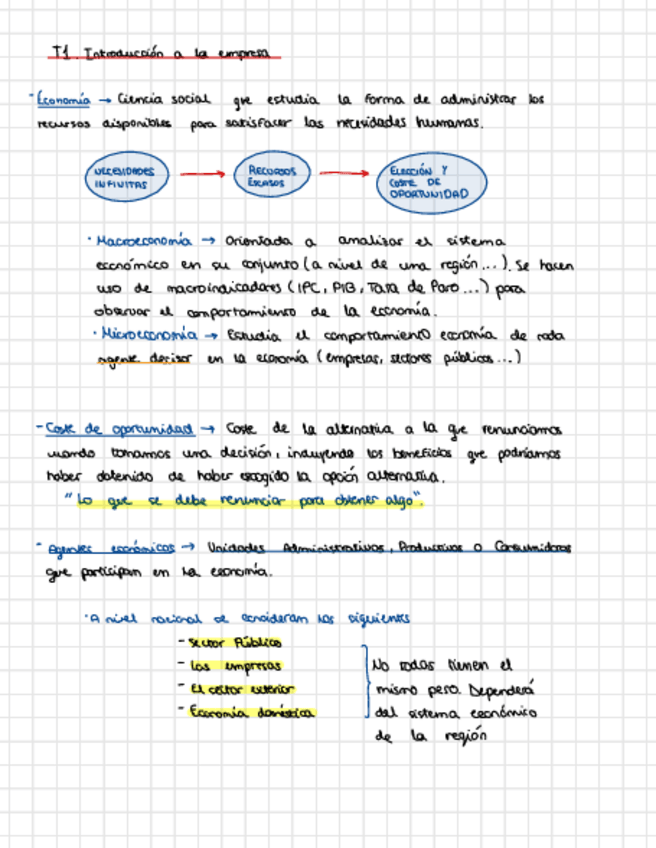 T1. Introducción a la empresa
- Economía → Ciencia social que estudia la forma de administrar los
recursos disponibles para satisfacer las necesidades humanas.
NECESIDADES
INFINITAS
→
RECURSOS
ESCASOS
→
ELECCIÓN Y
COSTE DE
OPORTUNIDAD
· Macroeconomía → Orientada a analizar el sistema
económico en su conjunto (a nivel de una región...). Se hacen
uso de macroindicadores (IPC, PIB, Tasa de Paro...) para
observar el comportamiento de la economía.
· Microeconomía → Estudia el comportamiento economía de cada
agente decisor en la economía (empresas, sectores públicos...)
- Coste de oportunidad → Coste de la alternativa a la que renunciamos
cuando tomamos una decisión, incluyendo los beneficios que podríamos
haber obtenido de haber escogido la opción alternativa.
"Lo que se debe renunciar para obtener algo".
- Agentes económicos → Unidades Administrativas, Productivas o Consumidoras
que participan en la economía.
· A nivel nacional se consideran los siguientes
- Sector Público
- Las empresas
- El sector exterior
- Economía doméstica
No todos tienen el
mismo peso. Dependerá
del sistema económico
de la región